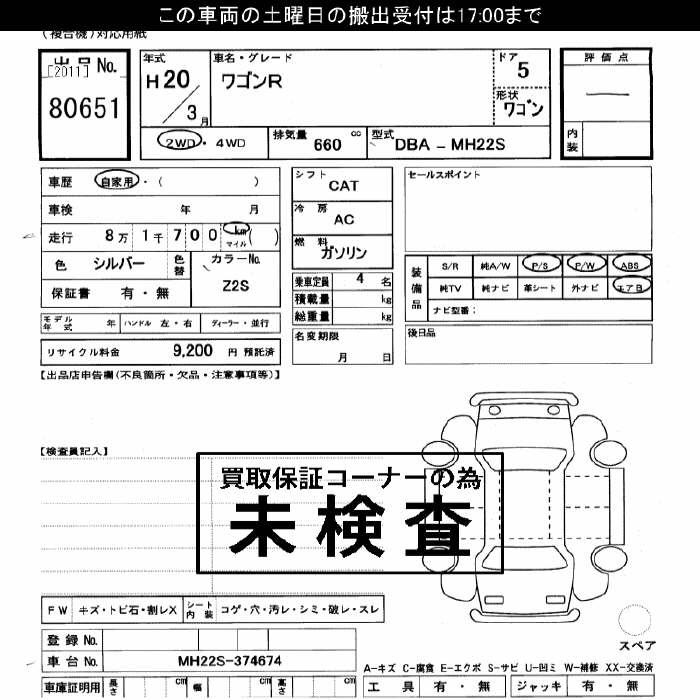 この車両の土曜日の搬出受付は17:00まで
(複合機)対応用紙
出品No.
[2011]
80651
年式
H20/3月
車名・グレード
ワゴンR
ドア
5
形状
ワゴン
評価点
内装
2WD・4WD
排気量 660 cc
型式 DBA - MH22S
車歴 自家用・( )
車検 年 月
走行 8万1千700 km マイル ( )
色 シルバー
色替
カラーNo.
Z2S
保証書 有・無
シフト
CAT
冷房
AC
燃料
ガソリン
乗車定員 4 名
積載量 kg
総重量 kg
セールスポイント
装備品
S/R 純A/W P/S P/W ABS
純TV 純ナビ 革シート 外ナビ エアB
ナビ型番:
モデル年式 年 ハンドル 左・右 ディーラー・並行
名変期限
月 日
後日品
リサイクル料金 9,200 円 預託済
【出品店申告欄(不良箇所・欠品・注意事項等)】
【検査員記入】
買取保証コーナーの為
未検査
FW キズ・トビ石・割レX シート内装 コゲ・穴・汚レ・シミ・破レ・スレ
登録No.
車台No. MH22S-374674
スペア
A-キズ C-腐食 E-エクボ S-サビ U-凹ミ W-補修 XX-交換済
車庫証明用 長さ cm 幅 cm 高さ cm
工具 有・無 ジャッキ 有・無